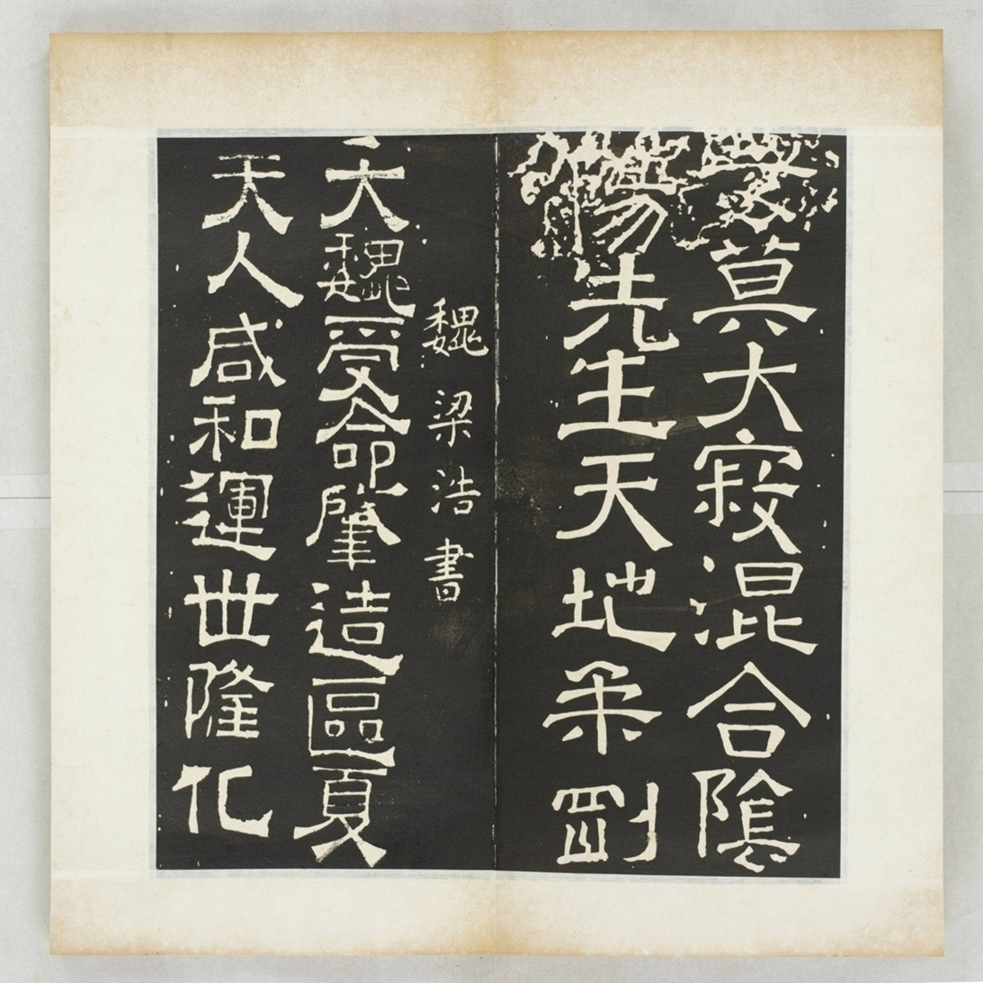 莫大寂混合陰
陽先生天地柔剛
魏梁浩書
大魏受命肇造區夏
天人咸和運世隆化